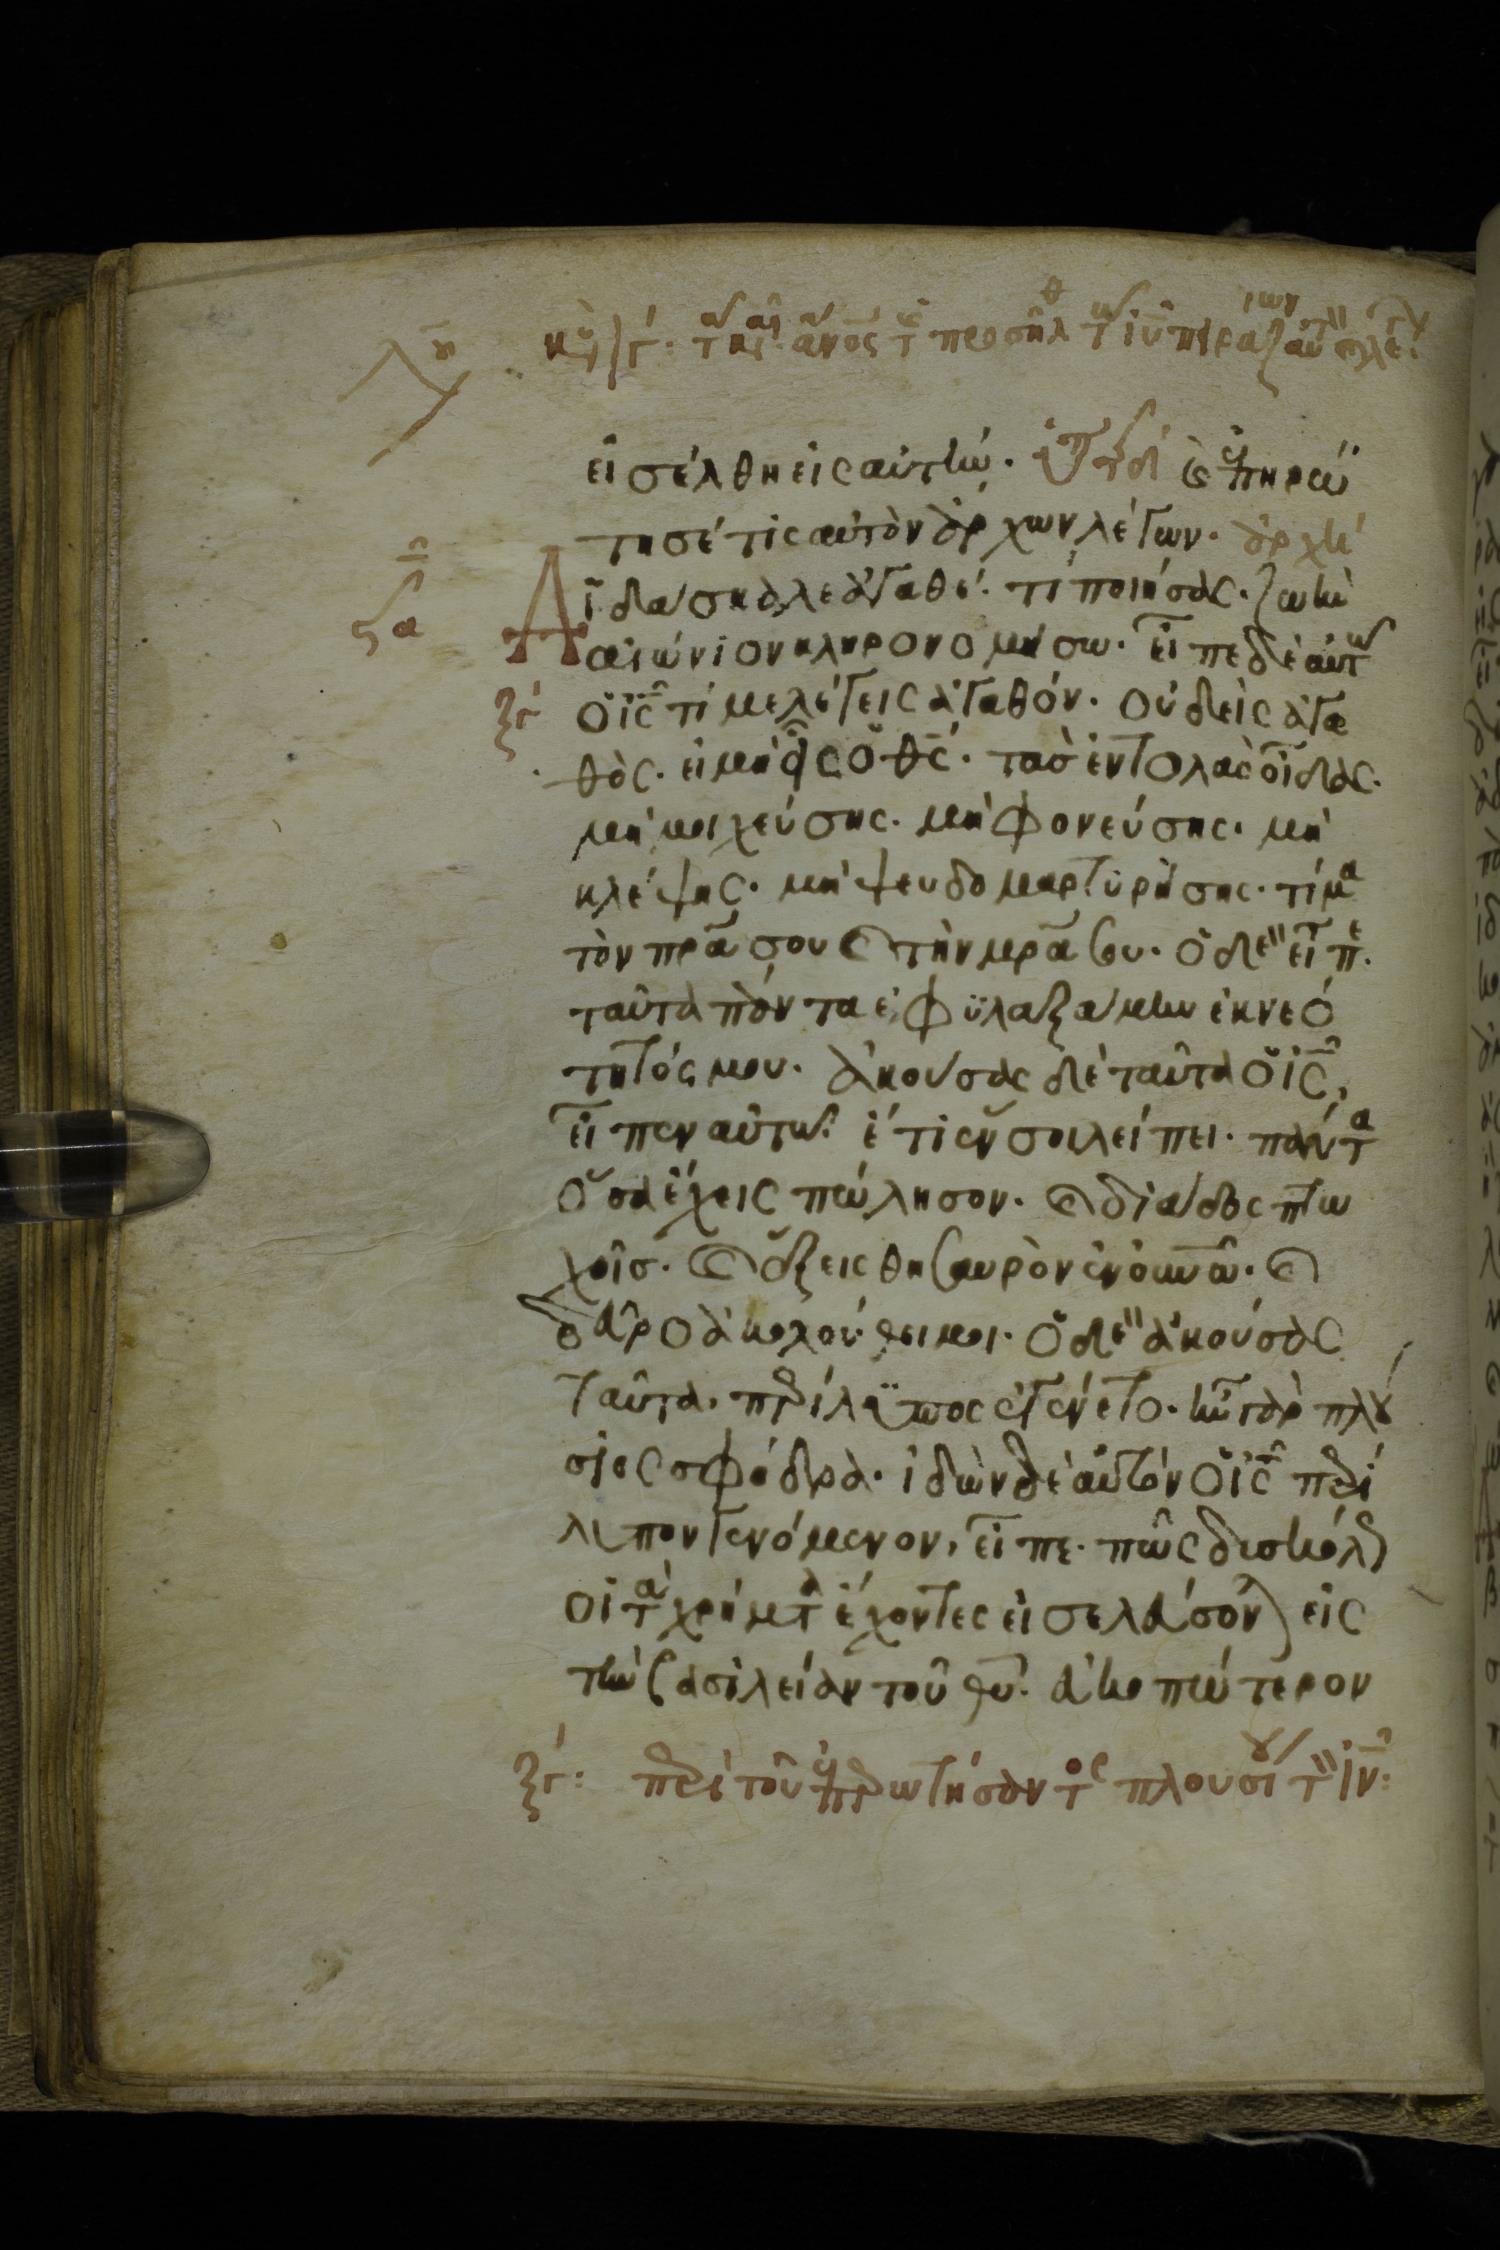 κυ ιγ: τ κ. ανος τ προσηλθ τ ιυ πειραζων αυτ κ λεγ
εἰσέλθη εἰς αὐτήν. ἐπηρώ
τησέ τις αὐτὸν ἄρχων λέγων. ἀρχὴ
Διδάσκαλε ἀγαθέ. τί ποιήσας. ζωὴν
αἰώνιον κληρονομήσω. εἶπε δὲ αὐτω
ξγ ὁ ις τί με λέγεις ἀγαθόν. οὐδεὶς ἀγα
θὸς. εἰ μὴ εἷς ὁ θς. τὰς ἐντολὰς οἶδας.
μὴ μοιχεύσης. μὴ φονεύσης. μὴ
κλέψης. μὴ ψευδομαρτυρήσης. τίμα
τὸν πρα σου κ τὴν μρα σου. ὁ δὲ εἶπε.
ταῦτα πάντα ἐφυλαξάμην ἐκ νεό
τητός μου. ἀκούσας δὲ ταῦτα ὁ ις,
εἶπεν αὐτω. ἔτι ἕν σοι λείπει. πάντα
ὅσα ἔχεις πώλησον. κ διάδος πτω
χοῖς. κ ἕξεις θησαυρὸν ἐν οὐνω. κ
δεῦρο ἀκολούθει μοι. ὁ δὲ ἀκούσας
ταῦτα. περίλυπος ἐγένετο. ἦν γὰρ πλού
σιος σφόδρα. ἰδὼν δὲ αὐτὸν ὁ ις περί
λυπον γενόμενον, εἶπε. πῶς δυσκόλως
οἱ τὰ χρήματα ἔχοντες εἰσελεύσονται εἰς
τὴν βασιλείαν τοῦ θυ. εὐκοπώτερον
ξγ: περὶ τοῦ ἐπερωτήσαντος πλουσίου τ ιν: